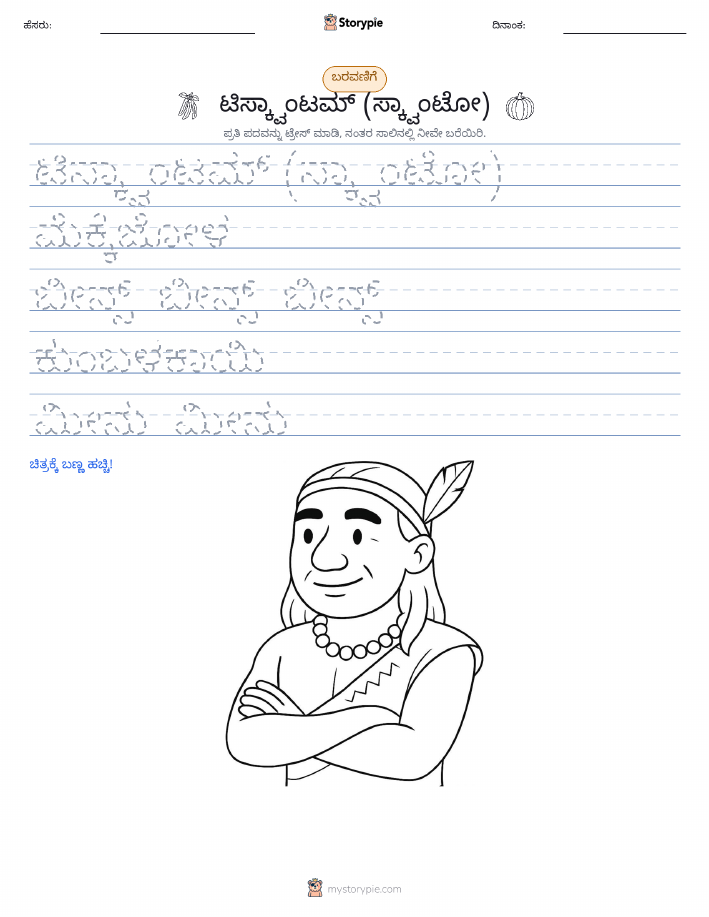 ಹೆಸರು:
Storypie
ದಿನಾಂಕ:
ಬರವಣಿಗೆ
ಟಿಸ್ಕ್ವಾಂಟಮ್ (ಸ್ಕ್ವಾಂಟೋ)
ಪ್ರತಿ ಪದವನ್ನು ಟ್ರೇಸ್ ಮಾಡಿ, ನಂತರ ಸಾಲಿನಲ್ಲಿ ನೀವೇ ಬರೆಯಿರಿ.
ಟಿಸ್ಕ್ವಾಂಟಮ್ (ಸ್ಕ್ವಾಂಟೋ)
ಮೆಕ್ಕೆಜೋಳ
ಬೀನ್ಸ್ ಬೀನ್ಸ್ ಬೀನ್ಸ್
ಕುಂಬಳಕಾಯಿ
ಮೀನು ಮೀನು
ಚಿತ್ರಕ್ಕೆ ಬಣ್ಣ ಹಚ್ಚಿ!
mystorypie.com